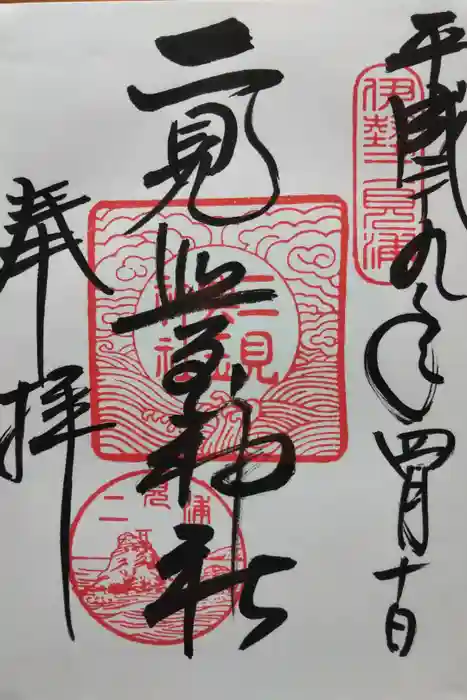 伊勢二見浦
平成二九年四月十日
二見興玉神社
二見興玉神社
二見浦
奉拝